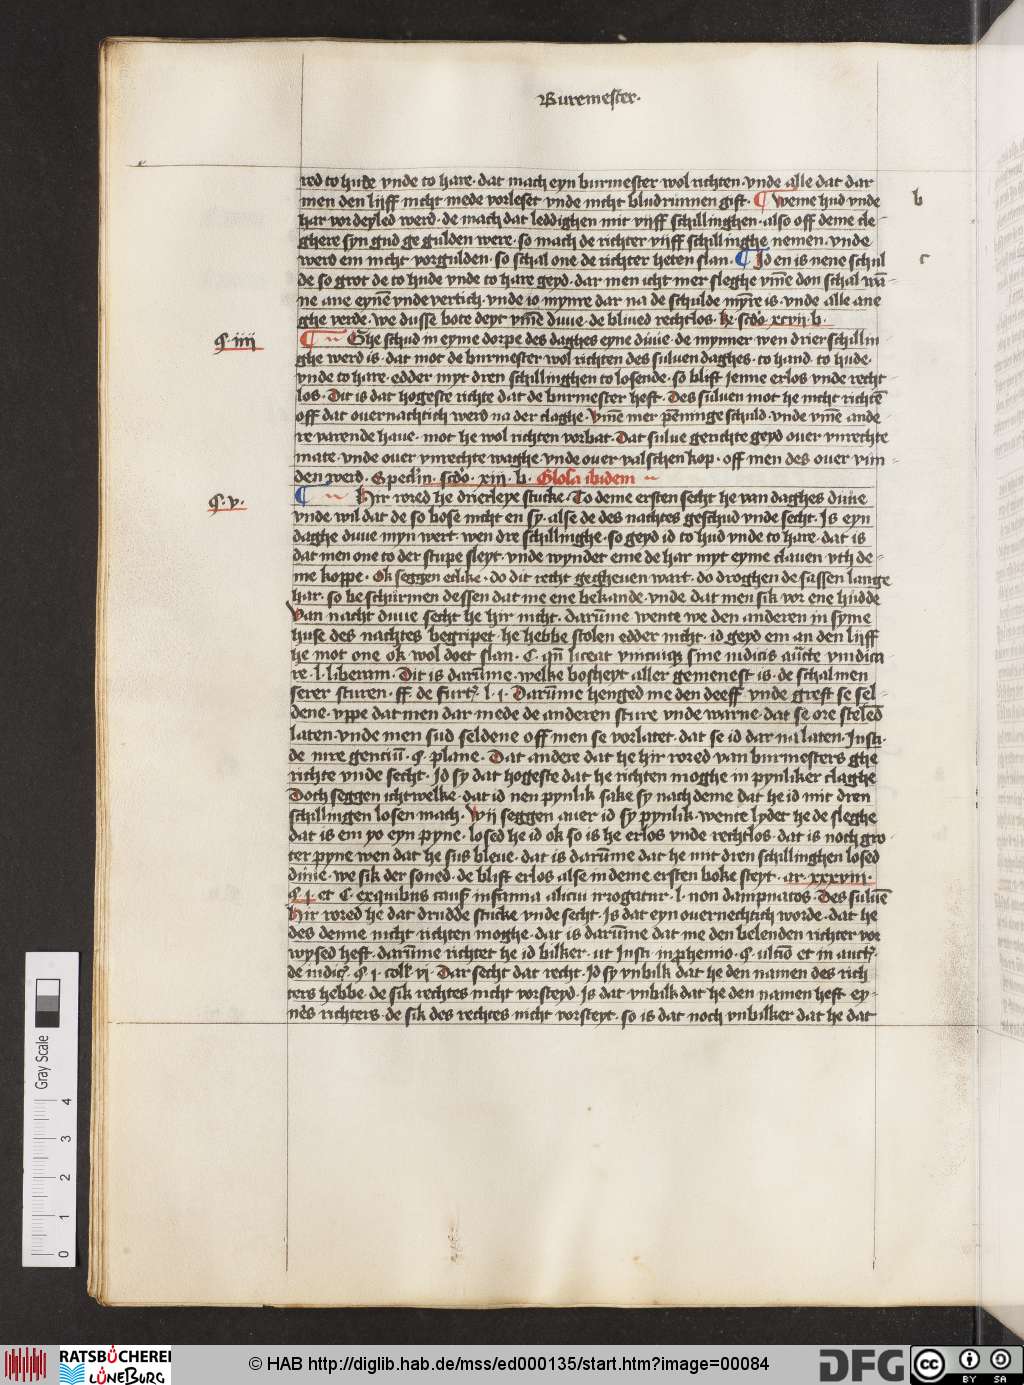 Buremester.
red to hude vnde to hare. dat mach eyn burmester wol richten. vnde alle dat dar
men den lijff nicht mede vorleset vnde nicht blud runnen gift. ¶ Weme hud vnde b
har vordeyled werd. de mach dat leddighen mit vijff schillinghen. also off deme cle-
ghere syn gud ge gulden were. so mach de richter vijff schillinghe nemen. vnde
werd em nicht vorgulden. so schal one de richter heten slan. ¶ Jd en is nene schul c
de so grot de to hude vnde to hare geyd. dar men icht mer sleghe vm̄e don schal wā-
ne ane eynē vnde vertich. vnde io mynre dar na de schulde mȳre is. vnde alle ane
ghe verde. we dusse bote deyt vm̄e duue. de bliued rechtlos. he. scd̓o. xcvij. b.
¶. iiij ¶ Ghe schud in eyme dorpe des daghes eyne duue. de mynner wen drier schillin
ghe werd is. dat mot de burmester wol richten des suluen daghes. to hand. to hude.
vnde to hare. edder myt dren schillinghen to losende. so blift jenne erlos vnde recht
los. Dit is dat hogeste richte dat de burmester heft. Des suluen mot he nicht richtē
off dat ouernachtich werd na der claghe. Vm̄e mer pēninge schuld. vnde vm̄e ande
re varende haue. mot he wol richten vorbat. Dat sulue gerichte geyd ouer vnrechte
mate. vnde ouer vnrechte waghe. vnde ouer valschen kop. off men des ouer vun
den werd. Specl̓m. scd̓o. xiij. b. Glosa ibidem
¶. v. ¶ Hir rored he drierleye stucke. To deme ersten secht he van daghes duue
vnde wil dat de so bose nicht en sy. alse de des nachtes geschud vnde secht. Is eyn
daghe duue myn wert. wen dre schillinghe. so geyd id to hud vnde to hare. dat is
dat men one to der stupe sleyt. vnde wyndet eme de har myt eyme clauen vth de-
me koppe. Ok seggen etlike. do dit recht gegheuen wart. do droghen de sassen lange
har. so beschirmen dessen dat me ene bekande. vnde dat men sik vor ene hudde
Van nacht duue secht he hir nicht. darūme wente we den anderen in syme
huse des nachtes begripet. he hebbe stolen edder nicht. id geyd em an den lijff
he mot one ok wol doet slan. C. qn̄ liceat vnicuiqȝ sine iudicis auc̄te vindica
re. l. liberam. Dit is darūme. welke bosheyt aller gemenest is. de schal men
serer sturen. ff. de furtꝭ. l. j. Darūme henged me den deeff vnde grest se sel-
dene. vppe dat men dar mede de anderen sture vnde warne. dat se ore steled̄
laten. vnde men sud seldene off men se vorlatet. dat se id dar na laten. Insti.
de iure genciū. ¶. plane. Dat andere dat he hir rored van burmesters ghe
richte vnde secht. Jd sy dat hogeste dat he richten moghe in pynliker claghe
Doch seggen icht welke. dat id nen pynlik sake sy nach deme dat he id mit dren
schillingen losen mach. Wij seggen auer id sy pynlik. wente lyder he de sleghe
dat is em yo eyn pyne. losed he id ok so is he erlos vnde rechtlos. dat is noch gro
ter pyne wen dat he sus bleue. dat is darūme dat he mit dren schillinghen losed
duue. we sik der soned. de blift erlos alse in deme ersten boke steyt. ar. xxxviij.
¶. j. et C. ex quibus caus̄ infamia alicui irrogatur. l. non dampnatos. Des suluē
Hir rored he dat drudde stucke vnde secht. Js dat eyn ouernechtich worde. dat he
des denne nicht richten moghe. dat is darūme dat me den belenden richter vor
wysed heft. darūme richtet he id bilker. ut Insti. in prhemio. ¶. ulti᷑o et in autꝭ.
de iudicꝭ. ¶. j. coll̓. vj. Dar secht dat recht. Jd sy vnbilk dat he den namen des rich
ters hebbe. de sik rechtes nicht vorsteyd. Js dat vnbilk dat he den namen heft ey-
nes richters. de sik des rechtes nicht vorsteyt. so is dat noch vnbilker dat he dat
Gray Scale
0 1 2 3 4
RATSBÜCHEREI LÜNEBURG
© HAB http://diglib.hab.de/mss/ed000135/start.htm?image=00084
DFG
cc BY SA